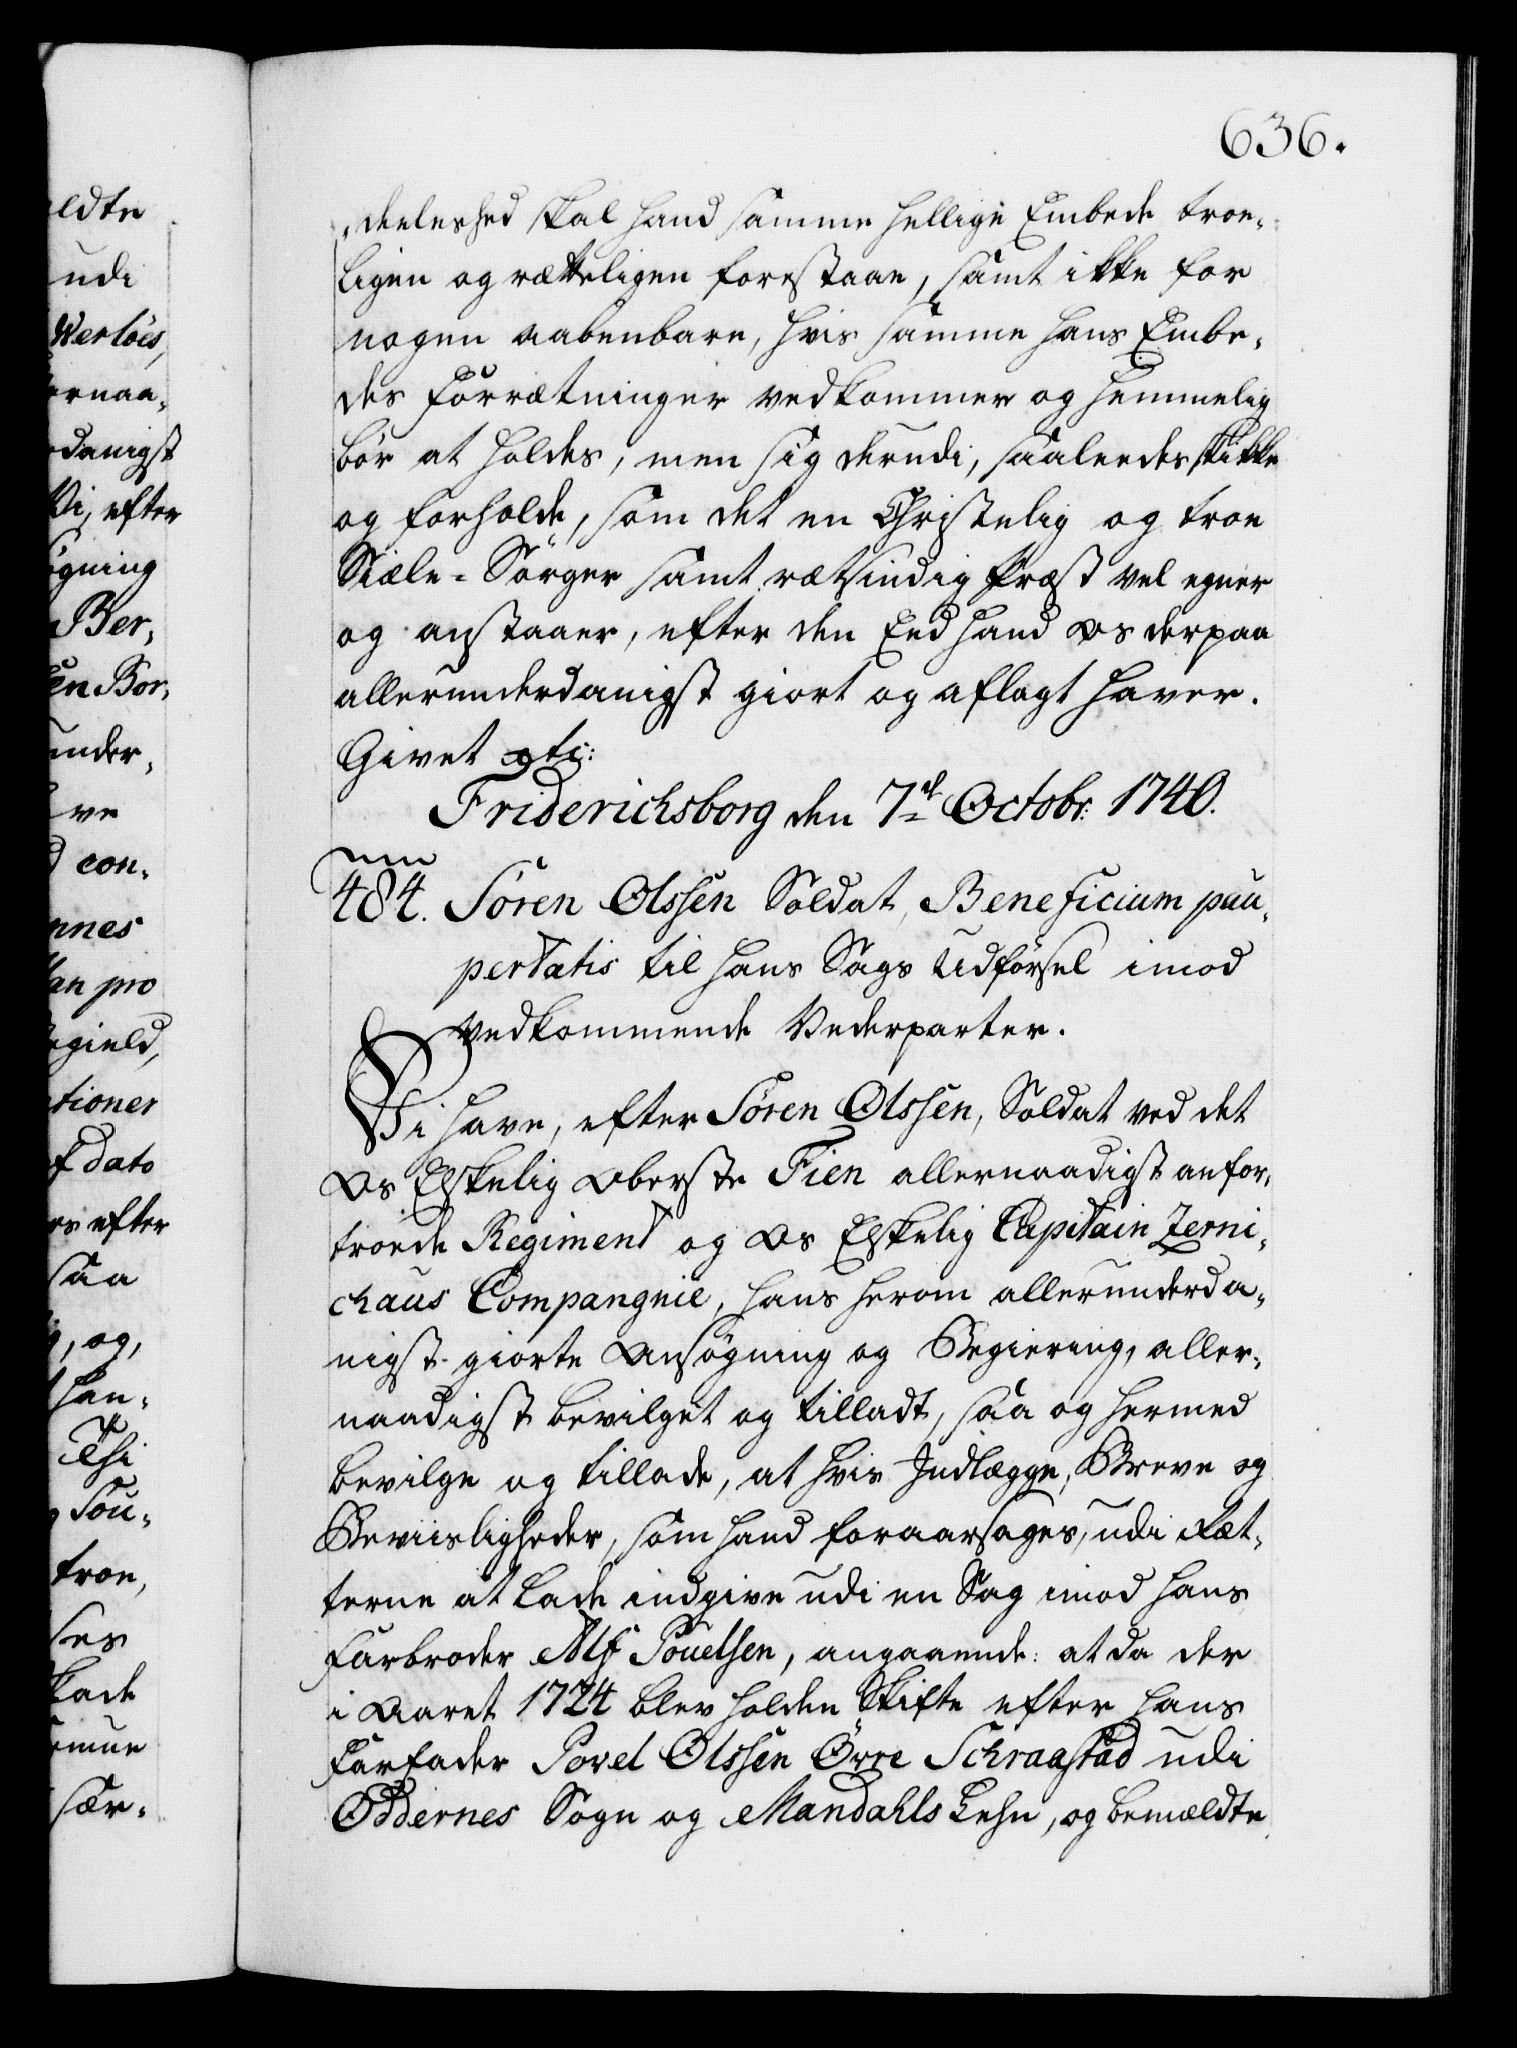 636.
ldte
udi
Werlòs,
ernaa-
danigst
Vi, efter
øgning
Ber-
en Bor-
under-
ve
d con-
nnes
an pro
egield,
tioner
f dato
es efter
saa
og,
han-
Thi
Sou-
troe,
ses
skade
emue
sær-
deeleshed skal hand samme hellige Embede troe-
ligen og rætteligen forestaae, samt ikke for
nogen aabenbare, hvis samme hans Embe-
des Forrætninger vedkommer og hemmelig
bør at holdes, men sig derudi, saaleedes skikke
og forholde, som det en Christelig og troe
Siæle-Sørger samt rætsindig Præst vel egner
og anstaaer, efter den Eed hand Os derpaa
allerunderdanigst giort og aflagt haver.
Givet etc:
Friderichsborg den 7de Octobr: 1740.
num
484. Søren Olssen Soldat, Beneficium pau-
pertatis til hans Sags Udførsel imod
vedkommende Vederparter.
Vi have, efter Søren Olssen, Soldat ved det
Os Elskelig Oberste Fien allernaadigst anfor-
troede Regiment og Os Elskelig Capitain Zerni-
chaus Compangnie, hans herom allerunderda-
nigst giorte Ansøgning og Begiering, aller-
naadigst bevilget og tilladt, saa og hermed
bevilge og tillade, at hvis Indlægge, Breve og
Beviisligheder, som hand foraarsages, udi Ræt-
terne at lade indgive udi en Sag imod hans
Farbroder Alf Pouelsen, angaaende: at da der
i Aaret 1724 blev holden Skifte efter hans
Farfader Povel Olssen Øvre Schraastad udi
Oddernes Sogn og Mandahls Lehn, og bemældte